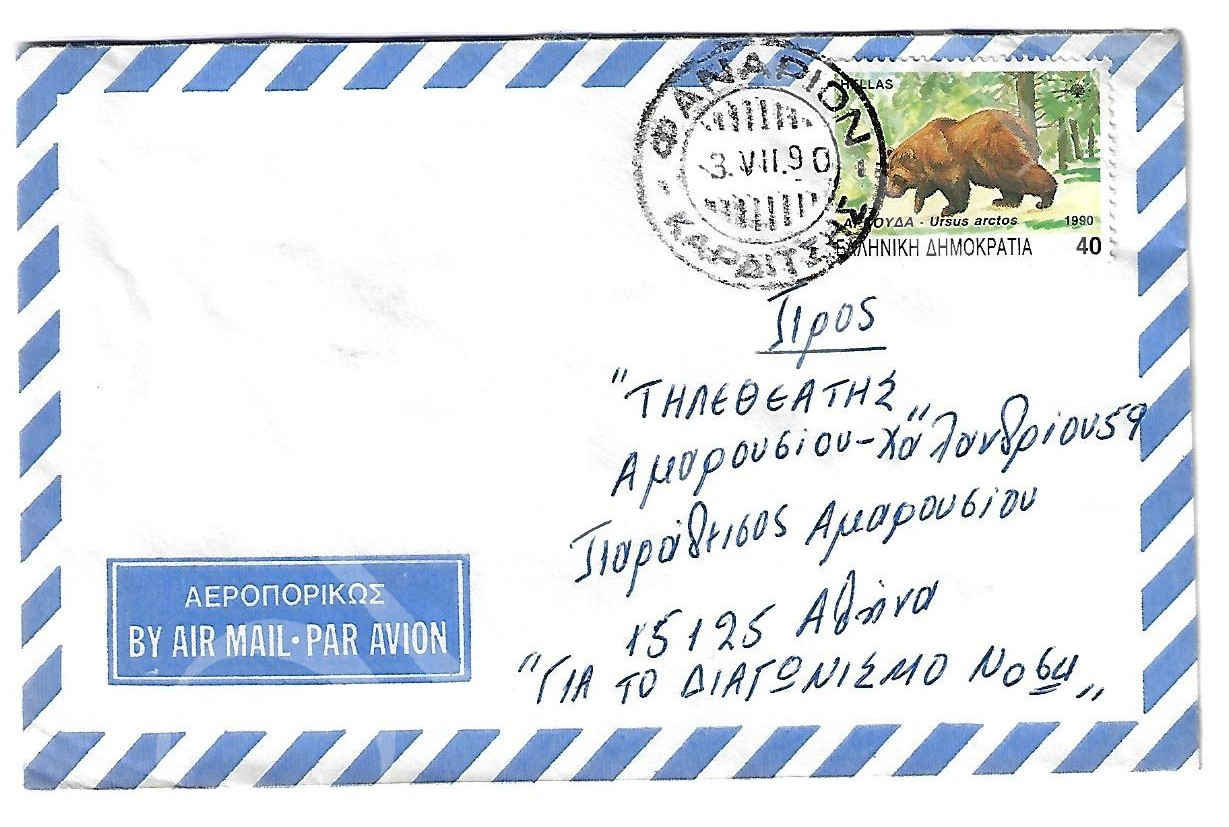 ΦΑΝΑΡΙΟΝ
3.VII.90
ΚΑΡΔΙΤΣΗΣ
HELLAS
ΑΡΚΟΥΔΑ · Ursus arctos 1990
ΕΛΛΗΝΙΚΗ ΔΗΜΟΚΡΑΤΙΑ 40
Προς
"ΤΗΛΕΘΕΑΤΗΣ"
Αμαρουσίου-Χαλανδρίου 59
Παράδεισος Αμαρουσίου
15125 Αθήνα
"ΓΙΑ ΤΟ ΔΙΑΓΩΝΙΣΜΟ
ΑΕΡΟΠΟΡΙΚΩΣ
BY AIR MAIL · PAR AVION